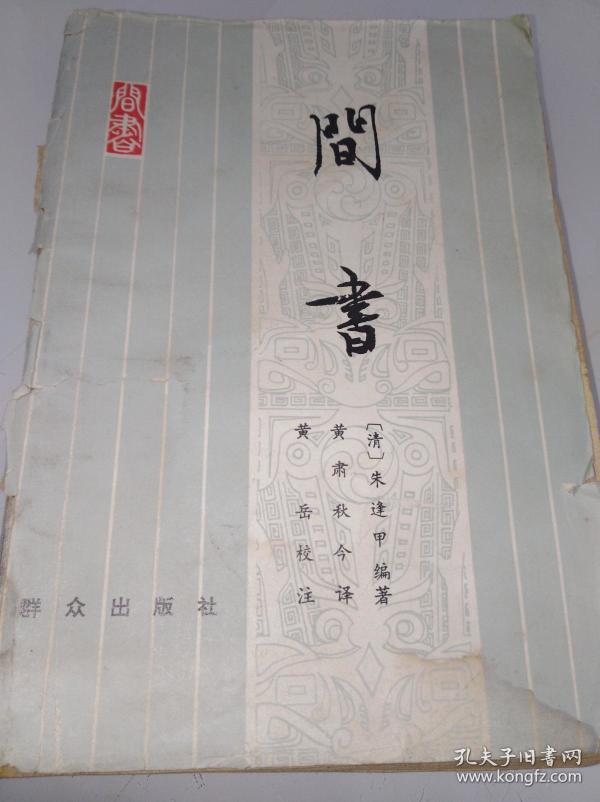 間書
間書
〔清〕朱逢甲编著
黄肃秋今译
黄岳校注
群众出版社
孔夫子旧书网
www.kongfz.com